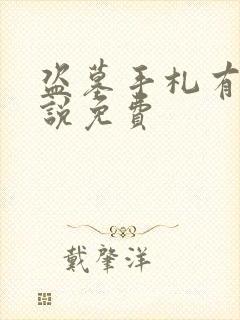 盗墓手札有
說免費
戴肇洋